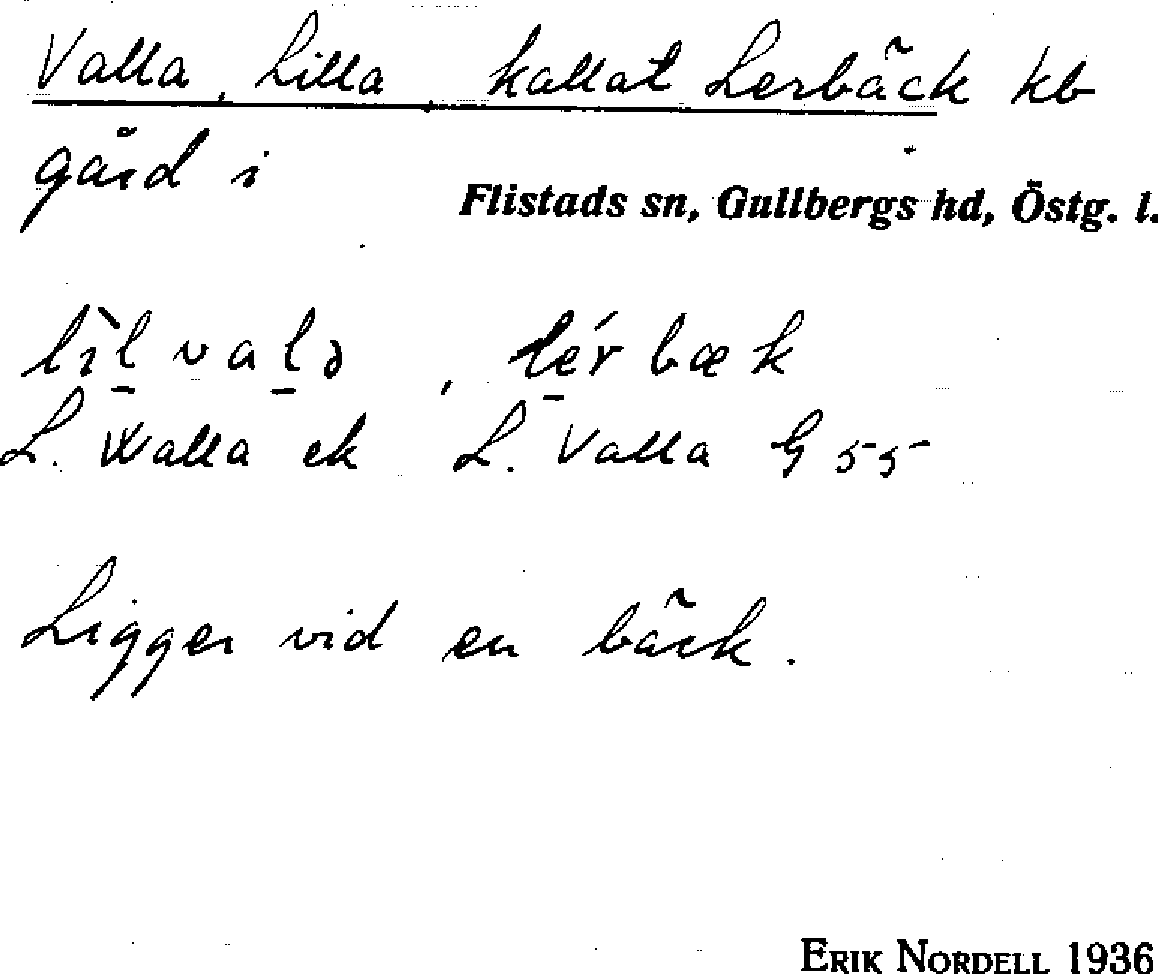 Valla, Lilla, kallat Lerbäck kb
gård i
Flistads sn, Gullbergs hd, Östg. l.
lìl̠ val̠ə, l̠érbæk
L. Walla ek L. Valla G 55
Ligger vid en bäck.
ERIK NORDELL 1936